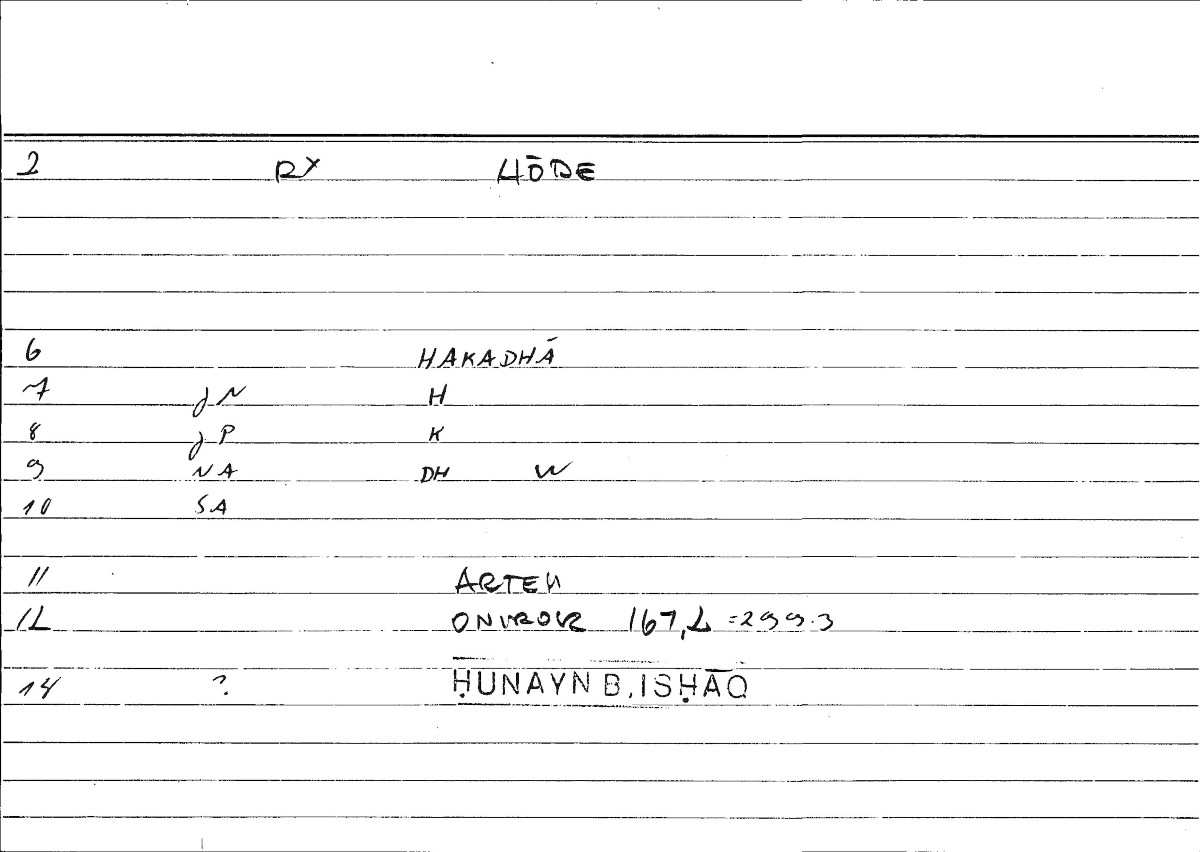 2 RX HŌDE
6 HAKADHĀ
7 JN H
8 JP K
9 NA DH W
10 SA
11 ARTEM
12 ONIROCR 167,2 =299.3
14 ? ḤUNAYN B, ISḤĀQ